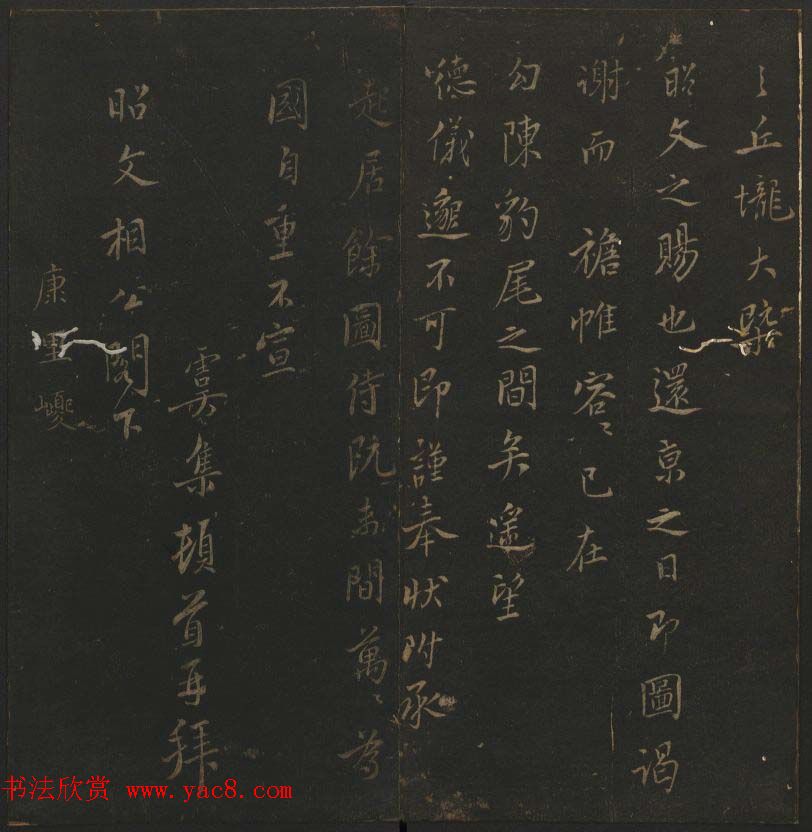 丘壠大槩
昭文之賜也還京之日即圖謁
謝而襜帷容〻已在
勾陳豹尾之間矣遥望
德儀邈不可即謹奉狀附承
起居餘圖侍未間萬〻為
國自重不宣
虞集頓首再拜
昭文相公閣下
康里巎
书法欣赏 www.yac8.com